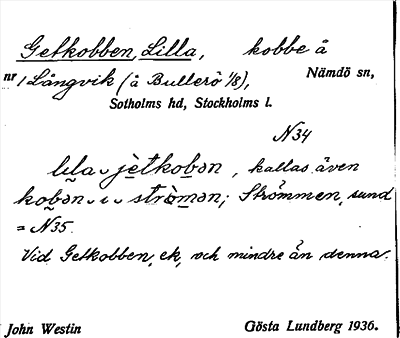 Getkobben, Lilla, kobbe å
nr 1 Långvik (å Bullerö 1/8), Nämdö sn,
Sotholms hd, Stockholms l.
N34
lıla ᴗ jètkobən, kallas även
kobən ᴗ ı ᴗ strömən; Strömmen, sund
= N35.
Vid Getkobben, ek, och mindre än denna.
John Westin Gösta Lundberg 1936.